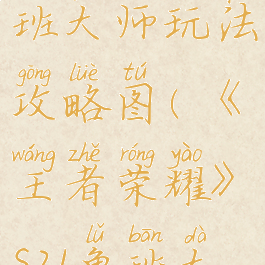 班大师玩法
gòng lüè tú
攻略图(《
wáng zhě róng yào
王者荣耀》
lǔ bān dà